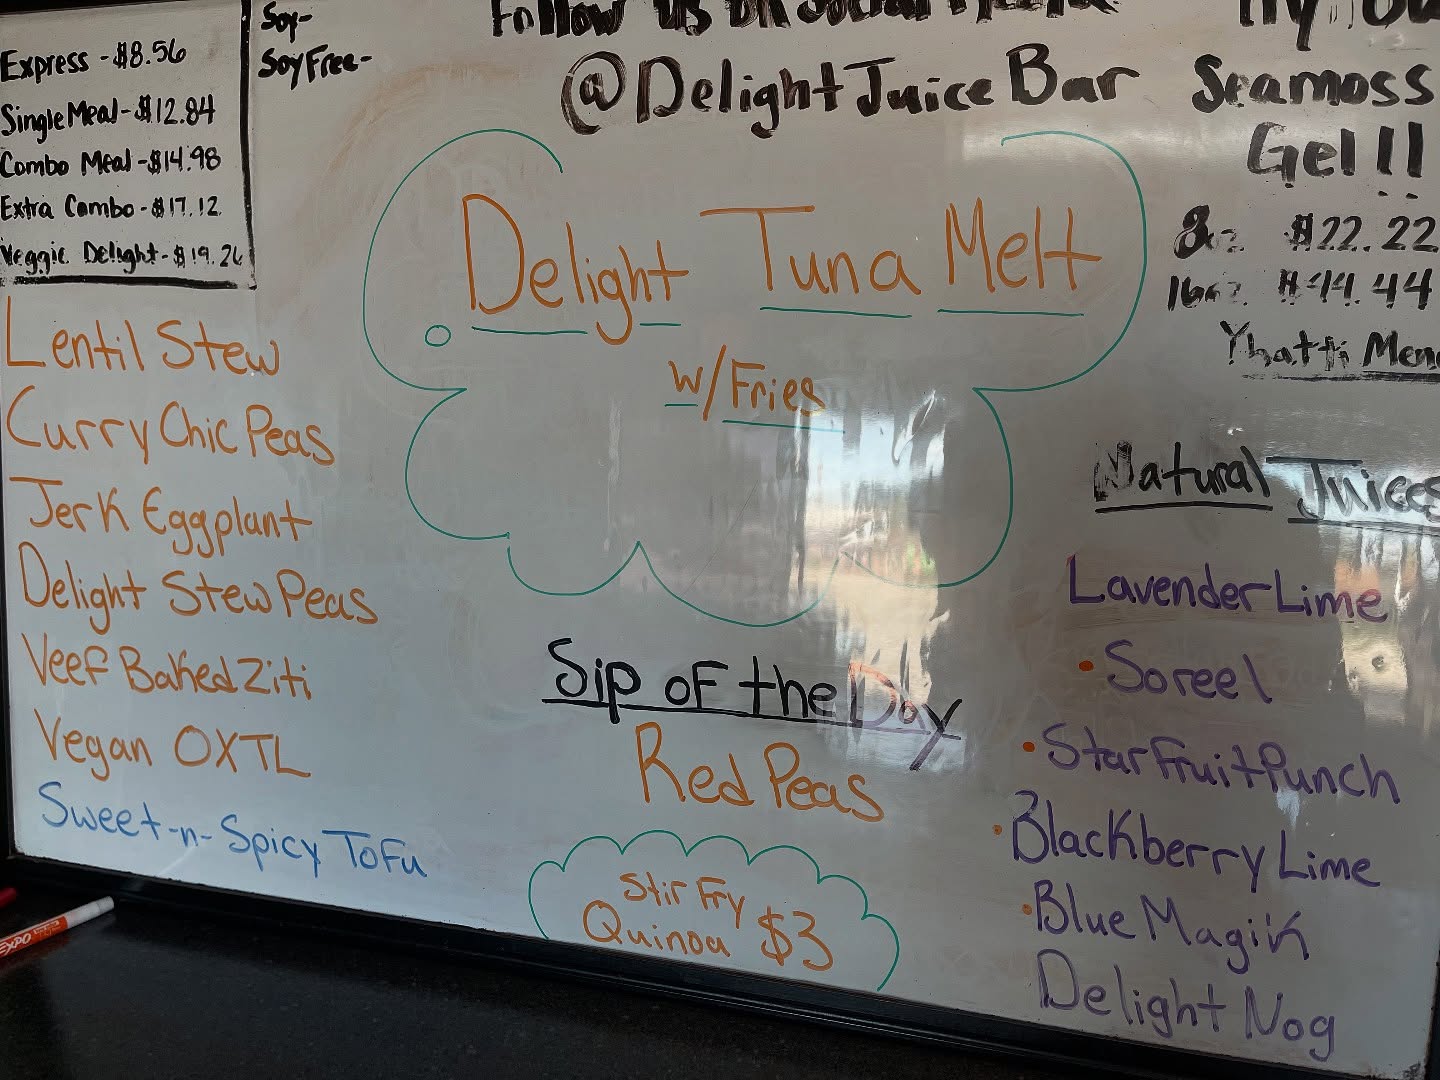 Express - $8.56
Single Meal - $12.84
Combo Meal - $14.98
Extra Combo - $17.12
Veggie Delight - $19.26
Soy-
Soy Free-
Follow us on Social Media
@DelightJuiceBar
Try Our
Seamoss
Gel!!
8oz. $22.22
16oz. $44.44
Yhatti Menu
Delight Tuna Melt
w/Fries
Lentil Stew
Curry Chic Peas
Jerk Eggplant
Delight Stew Peas
Veef Baked Ziti
Vegan OXTL
Sweet-n-Spicy Tofu
Sip of the Day
Red Peas
Stir Fry
Quinoa $3
Natural Juices
Lavender Lime
• Soreel
• Starfruit Punch
• Blackberry Lime
• Blue Magik
Delight Nog
EXPO